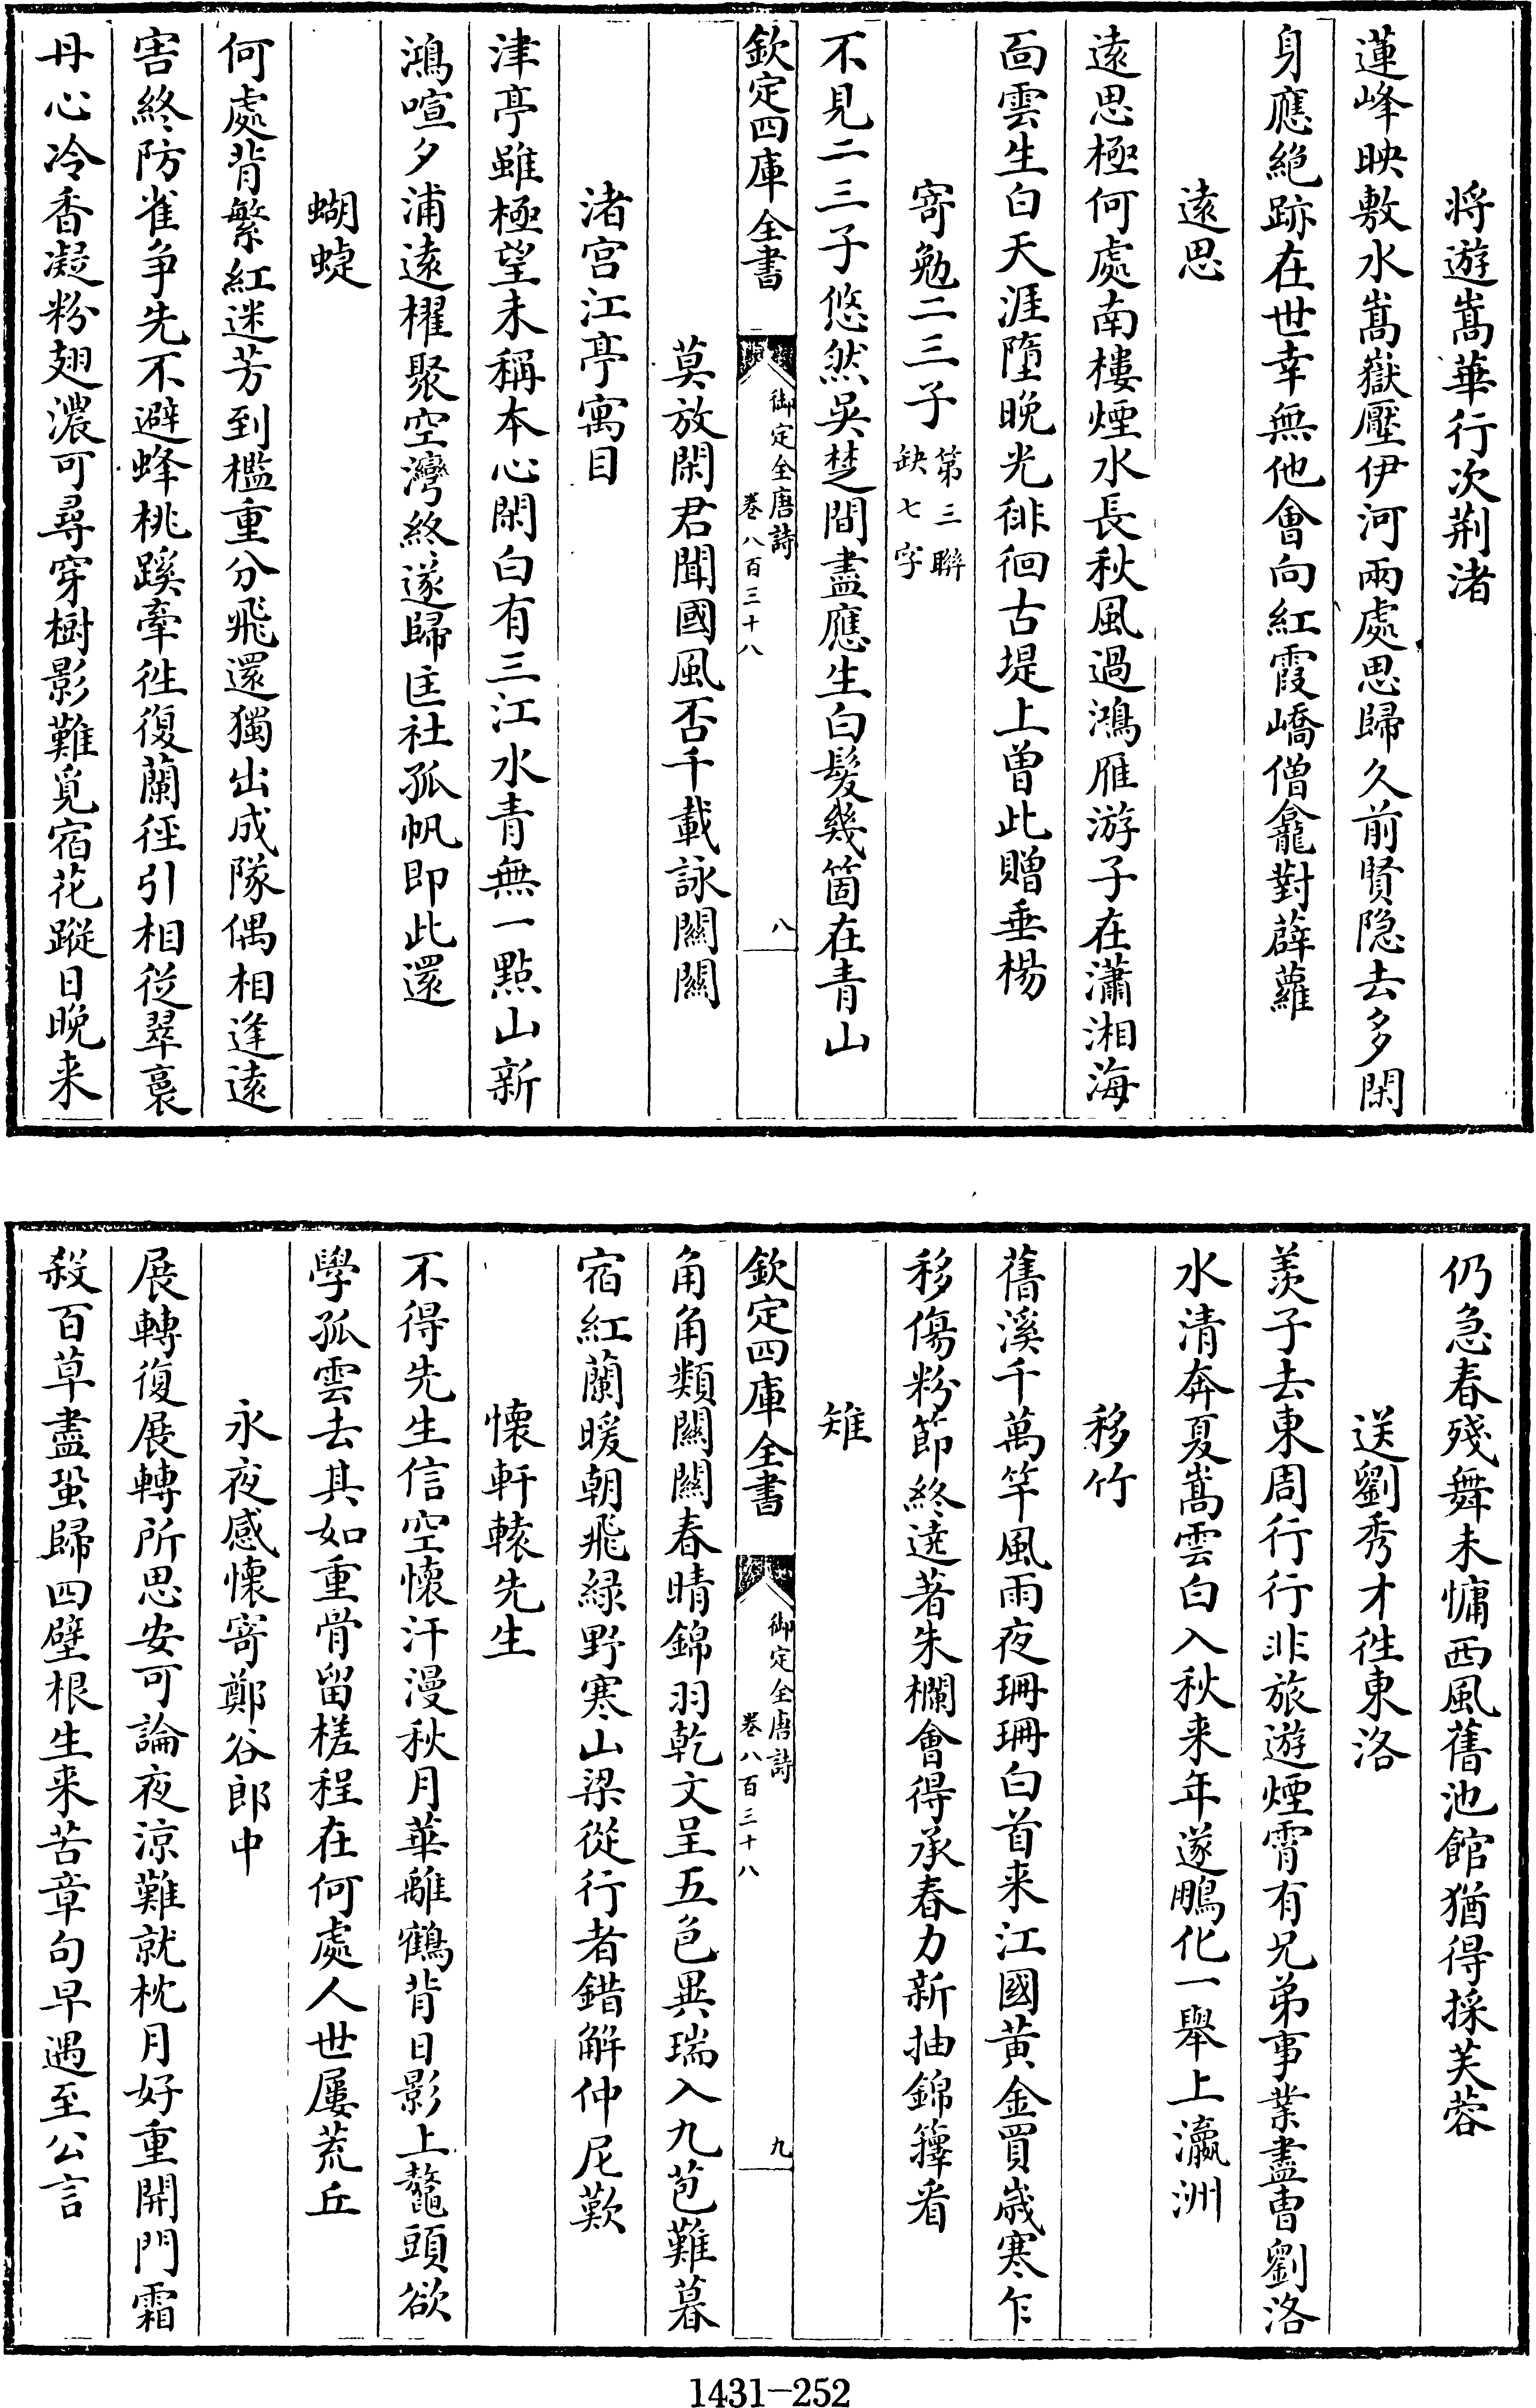 將遊嵩華行次荆渚
蓮峰映敷水嵩嶽壓伊河兩處思歸久前賢隱去多閑
身應絕跡在世幸無他會向紅霞嶠僧龕對薜蘿
遠思
遠思極何處南樓煙水長秋風過鴻雁游子在瀟湘海
面雲生白天涯墮晚光徘徊古堤上曾此贈垂楊
寄勉二三子第三聯缺七字
不見二三子悠然吳楚間盡應生白髮幾箇在青山
欽定四庫全書 御定全唐詩 卷八百三十八 八
莫放閑君聞國風否千載詠關關
渚宮江亭寓目
津亭雖極望未稱本心閑白有三江水青無一點山新
鴻喧夕浦遠櫂聚空灣終遂歸匡社孤帆即此還
蝴蜨
何處背繁紅迷芳到檻重分飛還獨出成隊偶相逢遠
害終防雀爭先不避蜂桃蹊牽往復蘭徑引相從翠裛
丹心冷香凝粉翅濃可尋穿樹影難覓宿花蹤日晚來
仍急春殘舞未慵西風舊池館猶得採芙蓉
送劉秀才往東洛
羡子去東周行行非旅遊煙霄有兄弟事業盡曹劉洛
水清奔夏嵩雲白入秋來年遂鵬化一舉上瀛洲
移竹
舊溪千萬竿風雨夜珊珊白首來江國黃金買歲寒乍
移傷粉節終遶著朱欄會得承春力新抽錦籜看
雉
欽定四庫全書 御定全唐詩 卷八百三十八 九
角角類關關春晴錦羽乾文呈五色異瑞入九苞難暮
宿紅蘭暖朝飛緑野寒山梁從行者錯解仲尼歎
懷軒轅先生
不得先生信空懷汗漫秋月華離鶴背日影上鼇頭欲
學孤雲去其如重骨留槎程在何處人世屢荒丘
永夜感懷寄鄭谷郎中
展轉復展轉所思安可論夜涼難就枕月好重開門霜
殺百草盡蛩歸四壁根生來苦章句早遇至公言
1431-252